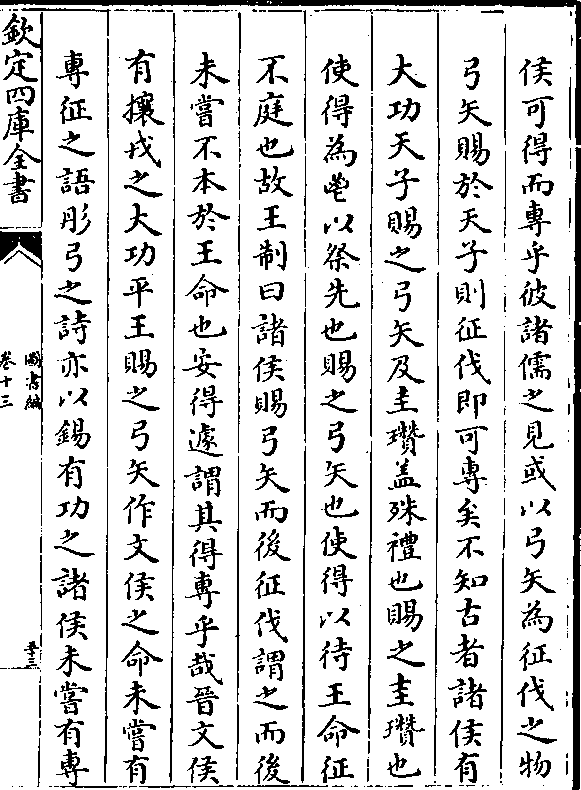 侯可得而專乎彼諸儒之見或以弓矢為征伐之物
弓矢賜於天子則征伐即可專矣不知古者諸侯有
大功天子賜之弓矢及圭瓚盖殊禮也賜之圭瓚也
使得為鬯以祭先也賜之弓矢也使得以待王命征
不庭也故王制曰諸侯賜弓矢而後征伐謂之而後
未嘗不本於王命也安得遽謂其得專乎哉晉文侯
有攘戎之大功平王賜之弓矢作文侯之命未嘗有
專征之語彤弓之詩亦以錫有功之諸侯未嘗有專
欽定四庫全書
圖書編
卷十三